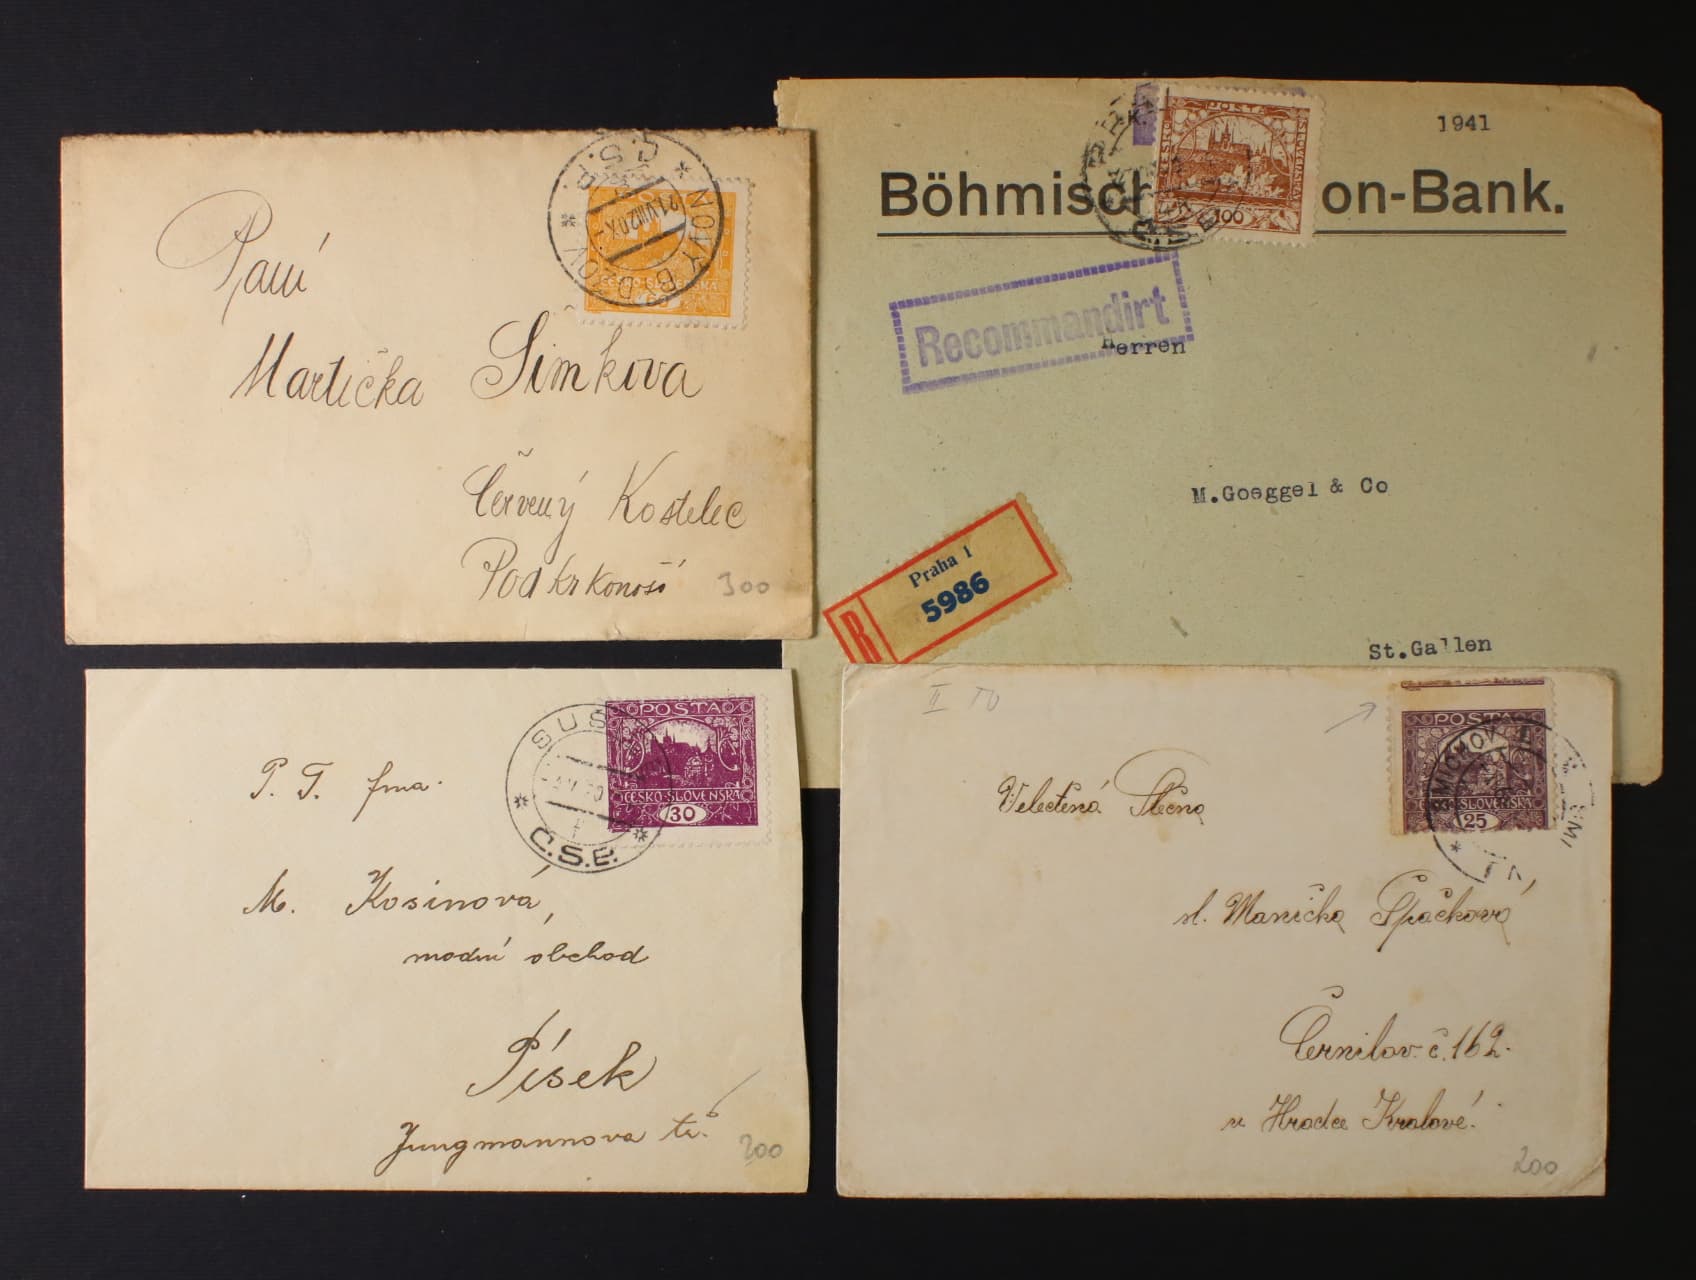 Paní
Martička Simkova
Červený Kostelec
Podkrkonoší
300
NOVÝ BYDŽOV
Č.S.P.
21.VIII.20
ČESKO-SLOVENSKÁ
60
1941
Böhmisc on-Bank.
POŠTA
ČESKO SLOVENSKÁ
100
Recommandirt
Herren
M.Goeggel & Co
St.Gallen
R
Praha 1
5986
P. T. firma
M. Kosinová,
modní obchod
Písek
Jungmannova tř.
200
SUŠ
Č.S.P.
POŠTA
ČESKO-SLOVENSKÁ
30
II TD
Velectěná Slečna
sl. Manička Špačková
Černilov č. 162.
u Hradce Králové.
200
POŠTA
SLOVENSKÁ
25
SMÍCHOV 1